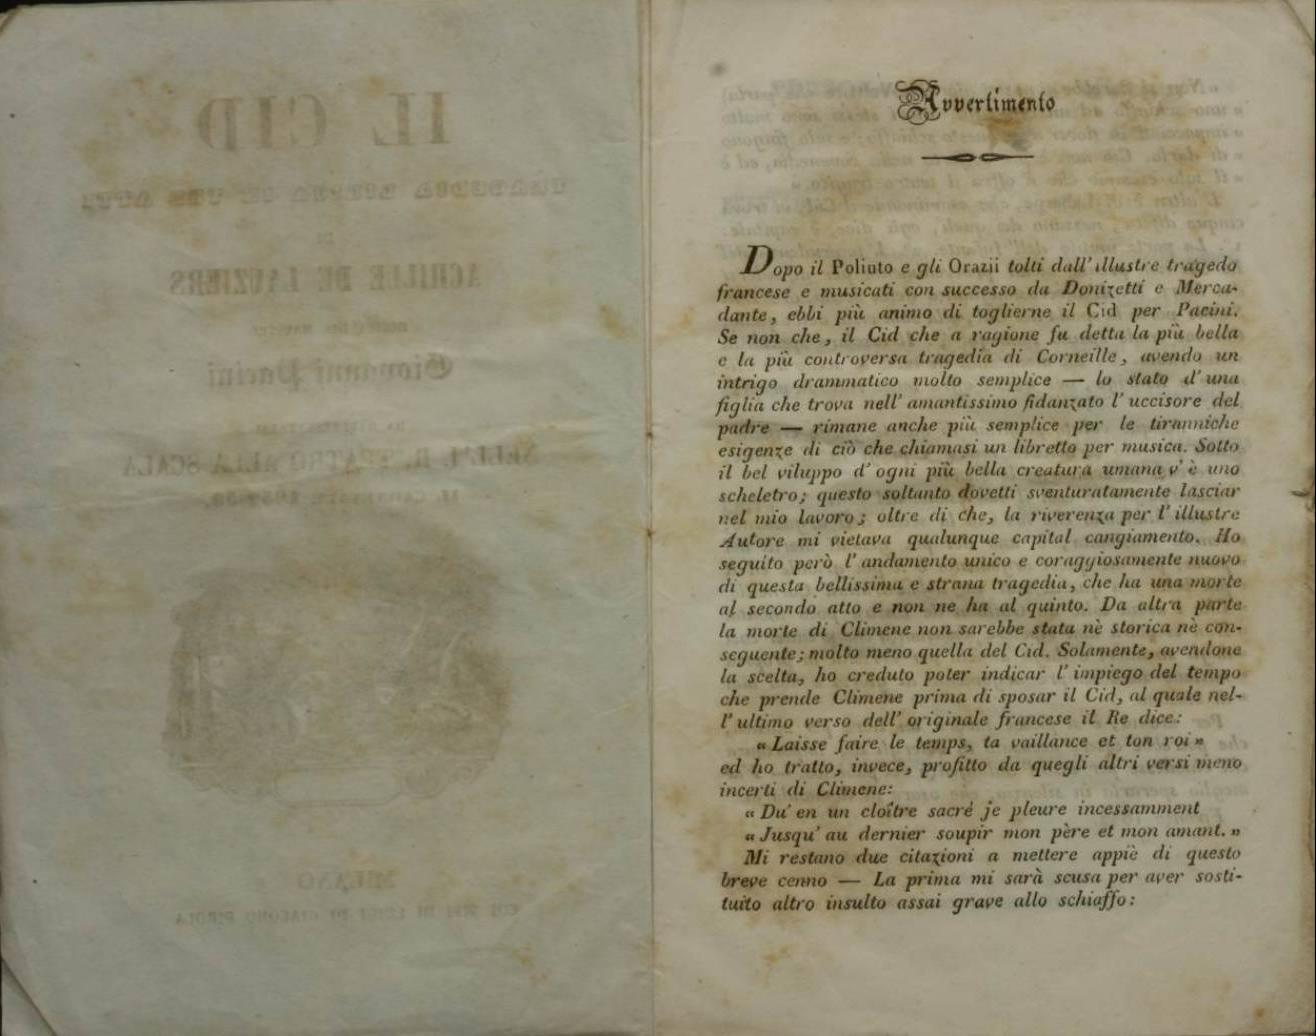 IL CID
TRAGEDIA LIRICA IN TRE ATTI
DI
ACHILLE DE LAUZIERS
Giovanni Pacini
NELL'I. R. TEATRO ALLA SCALA
MILANO
Avvertimento
Dopo il Poliuto e gli Orazii tolti dall' illustre tragedo
francese e musicati con successo da Donizetti e Merca-
dante, ebbi più animo di toglierne il Cid per Pacini.
Se non che, il Cid che a ragione fu detta la più bella
e la più controversa tragedia di Corneille, avendo un
intrigo drammatico molto semplice — lo stato d' una
figlia che trova nell' amantissimo fidanzato l' uccisore del
padre — rimane anche più semplice per le tiranniche
esigenze di ciò che chiamasi un libretto per musica. Sotto
il bel viluppo d' ogni più bella creatura umana v' è uno
scheletro; questo soltanto dovetti sventuratamente lasciar
nel mio lavoro; oltre di che, la riverenza per l' illustre
Autore mi vietava qualunque capital cangiamento. Ho
seguito però l' andamento unico e coraggiosamente nuovo
di questa bellissima e strana tragedia, che ha una morte
al secondo atto e non ne ha al quinto. Da altra parte
la morte di Climene non sarebbe stata nè storica nè con-
seguente; molto meno quella del Cid. Solamente, avendone
la scelta, ho creduto poter indicar l' impiego del tempo
che prende Climene prima di sposar il Cid, al quale nel-
l' ultimo verso dell' originale francese il Re dice:
« Laisse faire le temps, ta vaillance et ton roi »
ed ho tratto, invece, profitto da quegli altri versi meno
incerti di Climene:
« Du' en un cloître sacré je pleure incessamment
« Jusqu' au dernier soupir mon père et mon amant. »
Mi restano due citazioni a mettere appiè di questo
breve cenno — La prima mi sarà scusa per aver sosti-
tuito altro insulto assai grave allo schiaffo: